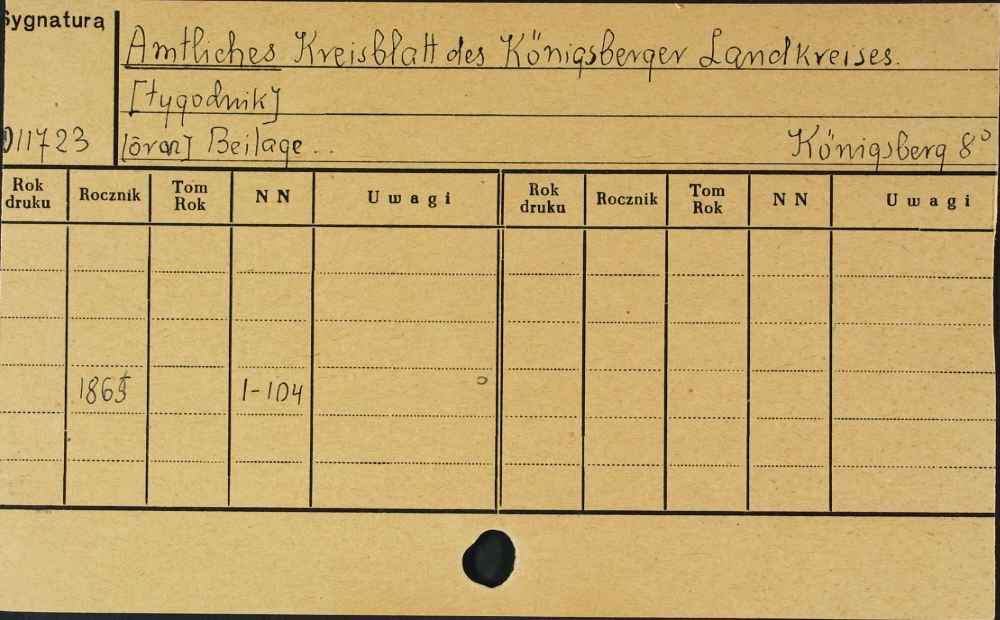 Sygnatura
Amtliches Kreisblatt des Königsberger Landkreises.
[tygodnik]
011723
[oraz] Beilage... Königsberg 8°
Rok druku Rocznik Tom Rok NN Uwagi Rok druku Rocznik Tom Rok NN Uwagi
1865 1-104